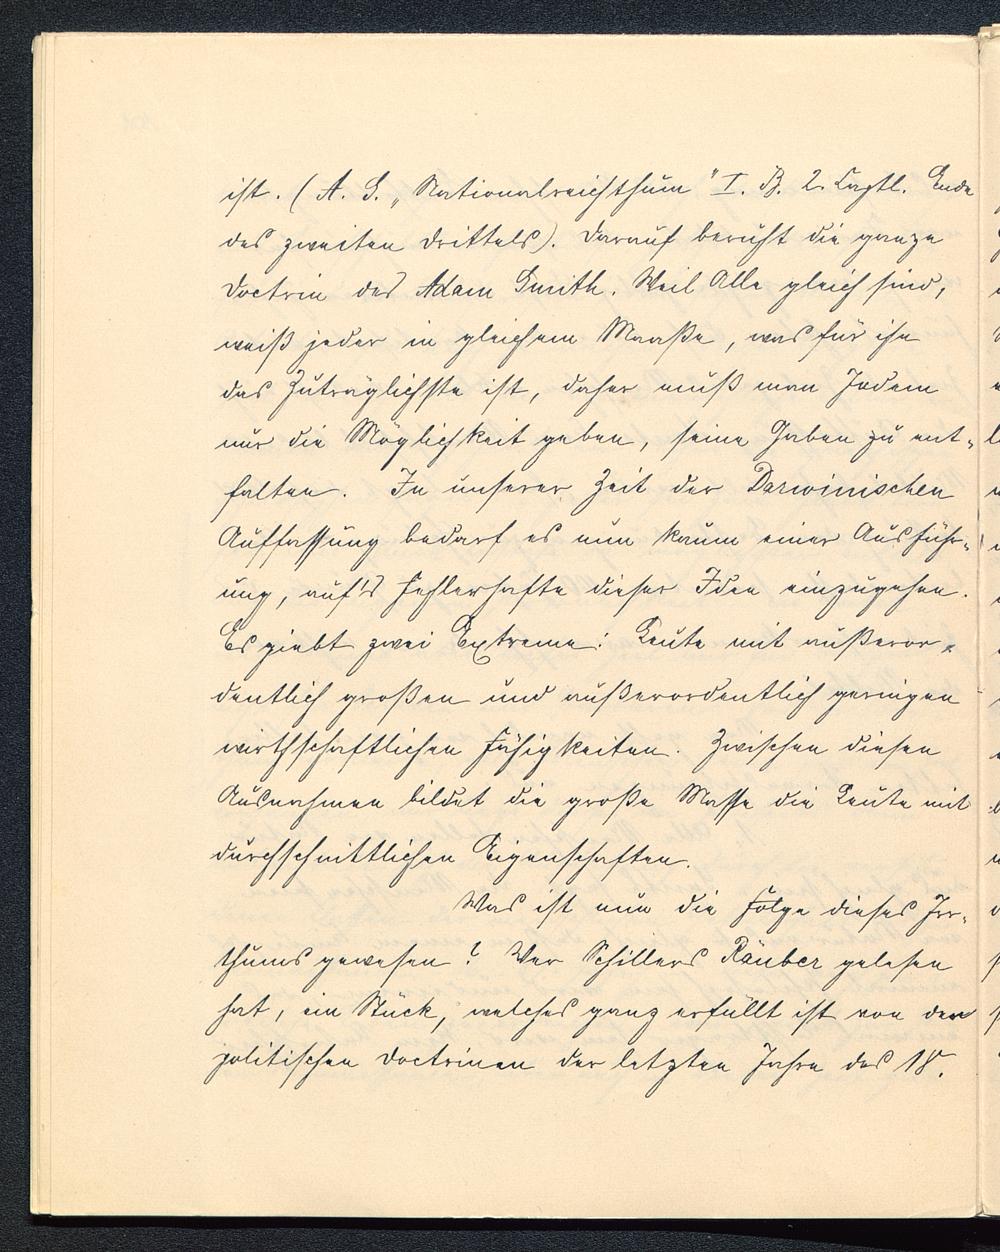 ist. (A. S. „Nationalreichthum" I. B. 2. Captl. Ende
des zweiten Drittels). Darauf beruht die ganze
Doctrin des Adam Smith. Weil Alle gleich sind,
weiß jeder in gleichem Maaße, was für ihn
das Zuträglichste ist, daher muß man Jedem
nur die Möglichkeit geben, seine Gaben zu ent-
falten. In unserer Zeit der Darwinischen
Auffassung bedarf es nun kaum einer Ausführ-
ung, auf's Fehlerhafte dieser Idee einzugehen.
Es giebt zwei Extreme: Leute mit außeror-
dentlich großen und außerordentlich geringen
wirthschaftlichen Fähigkeiten. Zwischen diesen
Ausnahmen bildet die große Masse die Leute mit
durchschnittlichen Eigenschaften.
Was ist nun die Folge dieses Irr-
thums gewesen? Wer Schillers Räuber gelesen
hat, ein Stück, welches ganz erfüllt ist von den
politischen Doctrinen der letzten Jahre des 18.